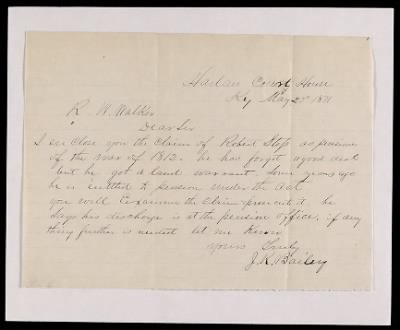 Harlan Court House
Ky May 29th 1871
R. W. Walker
Dear Sir
I en Close you the Claim of Robert Stap as pensioner
of the war of 1812. he has forgot a good deal
but he got a land warrant Some years ago
he is entitled to pension under the Act
you will Examine the Claim prosecute it, he
Says his discharge is at the pension office, if any
thing further is needed let me Know
yours Truly
J. K. Bailey